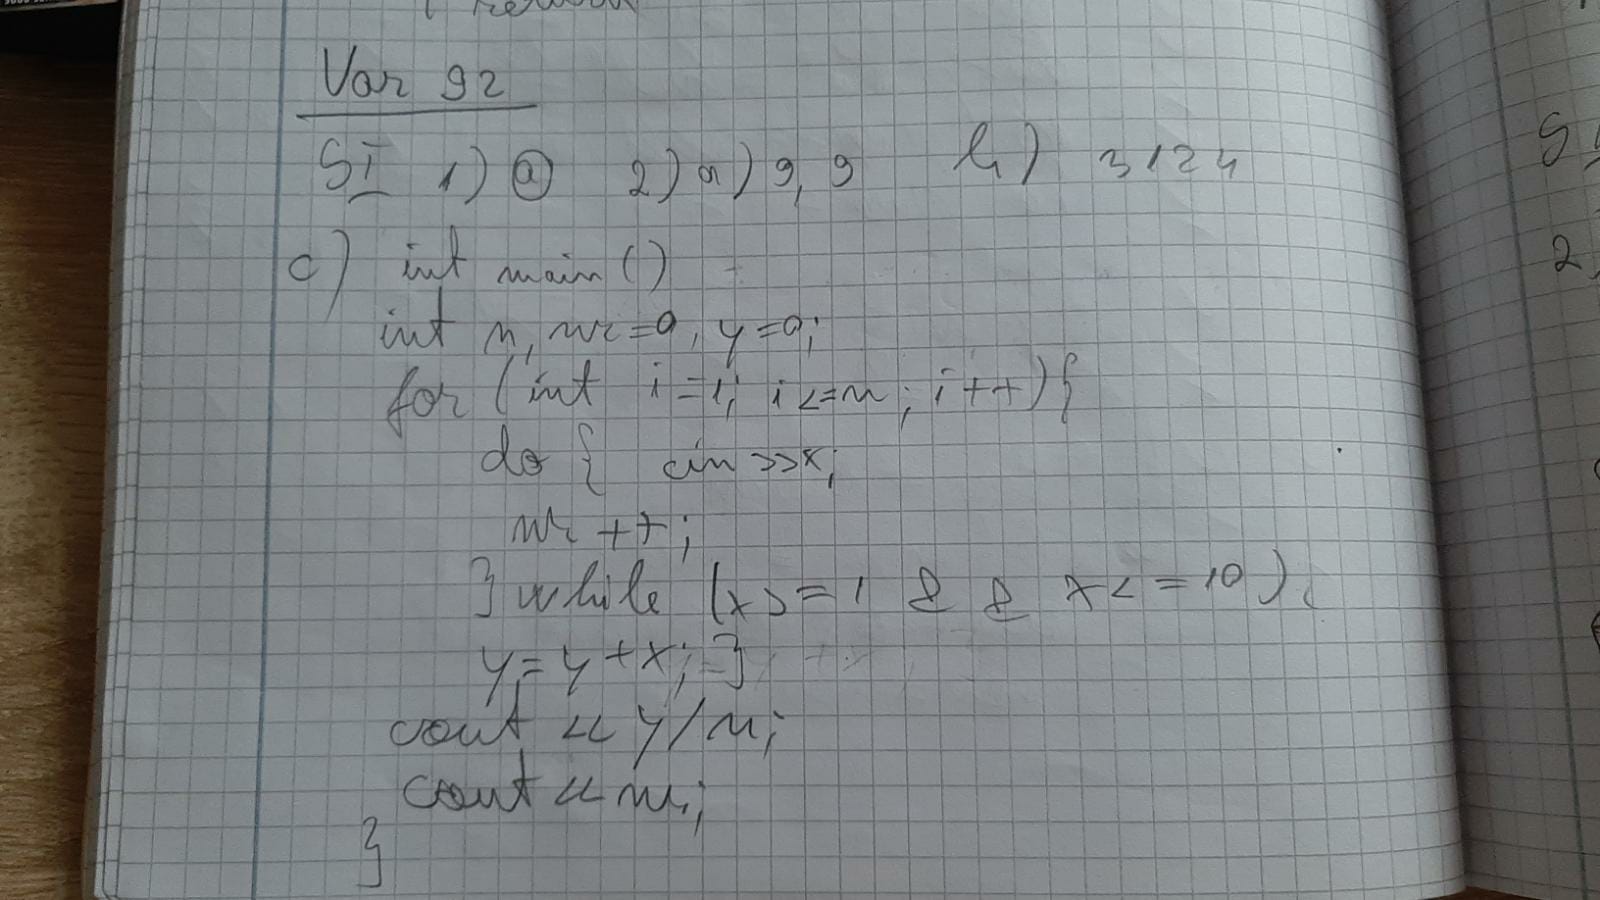 Var 92
SI 1) a 2) a) 9, 9 b) 3124
c) int main()
int n, nr=0, y=0;
for (int i=1; i<=n; i++){
do { cin>>x;
nr ++;
} while (x>=1 && x<=10);
y=y+x; }
cout << y/n;
cout << nr;
}
S
2